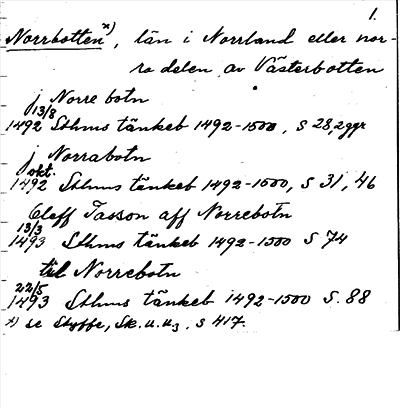 1.
Norrbotten x), län i Norrland eller nor-
ra delen av Västerbotten
j Norre botn
13/8
1492 Sthms tänkeb 1492-1500, S 28, 2 ggr
j Norrabotn
okt.
1492 Sthms tänkeb 1492-1500, S 31, 46
Oleff Jasson aff Norrebotn
13/3
1493 Sthms tänkeb 1492-1500 S 74
til Norrebotn
22/5
1493 Sthms tänkeb 1492-1500 S. 88
x) se Styffe, Sk. u. u3. s 417.